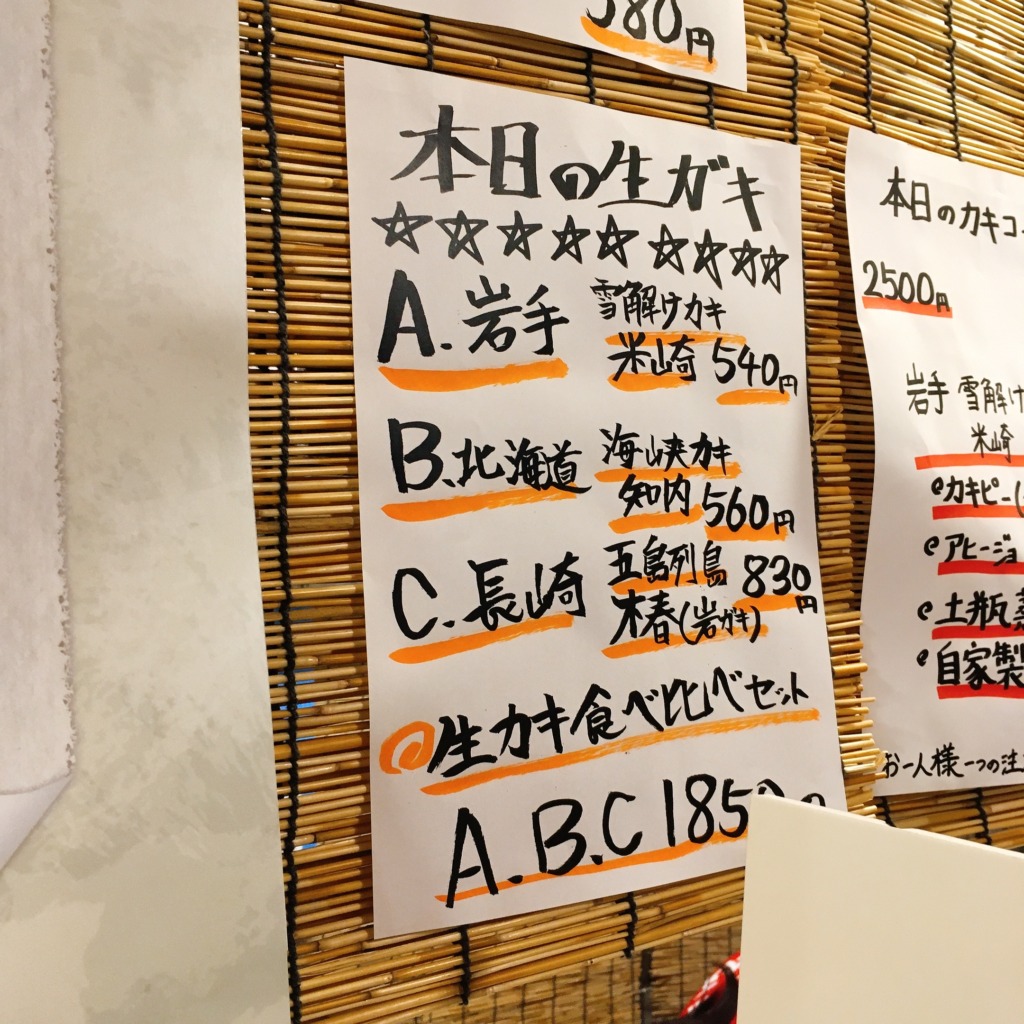 580円
本日の生ガキ
☆☆☆☆☆☆☆☆☆
A.岩手 雪解けカキ
米崎 540円
B.北海道 海峡カキ
知内 560円
C.長崎 五島列島 830円
木春(岩ガキ)
生カキ食べ比べセット
A.B.C 185
本日のカキコー
2500円
岩手 雪解け
米崎
カキピー(
アヒージョ
土瓶蒸
自家製
お一人様一つの注